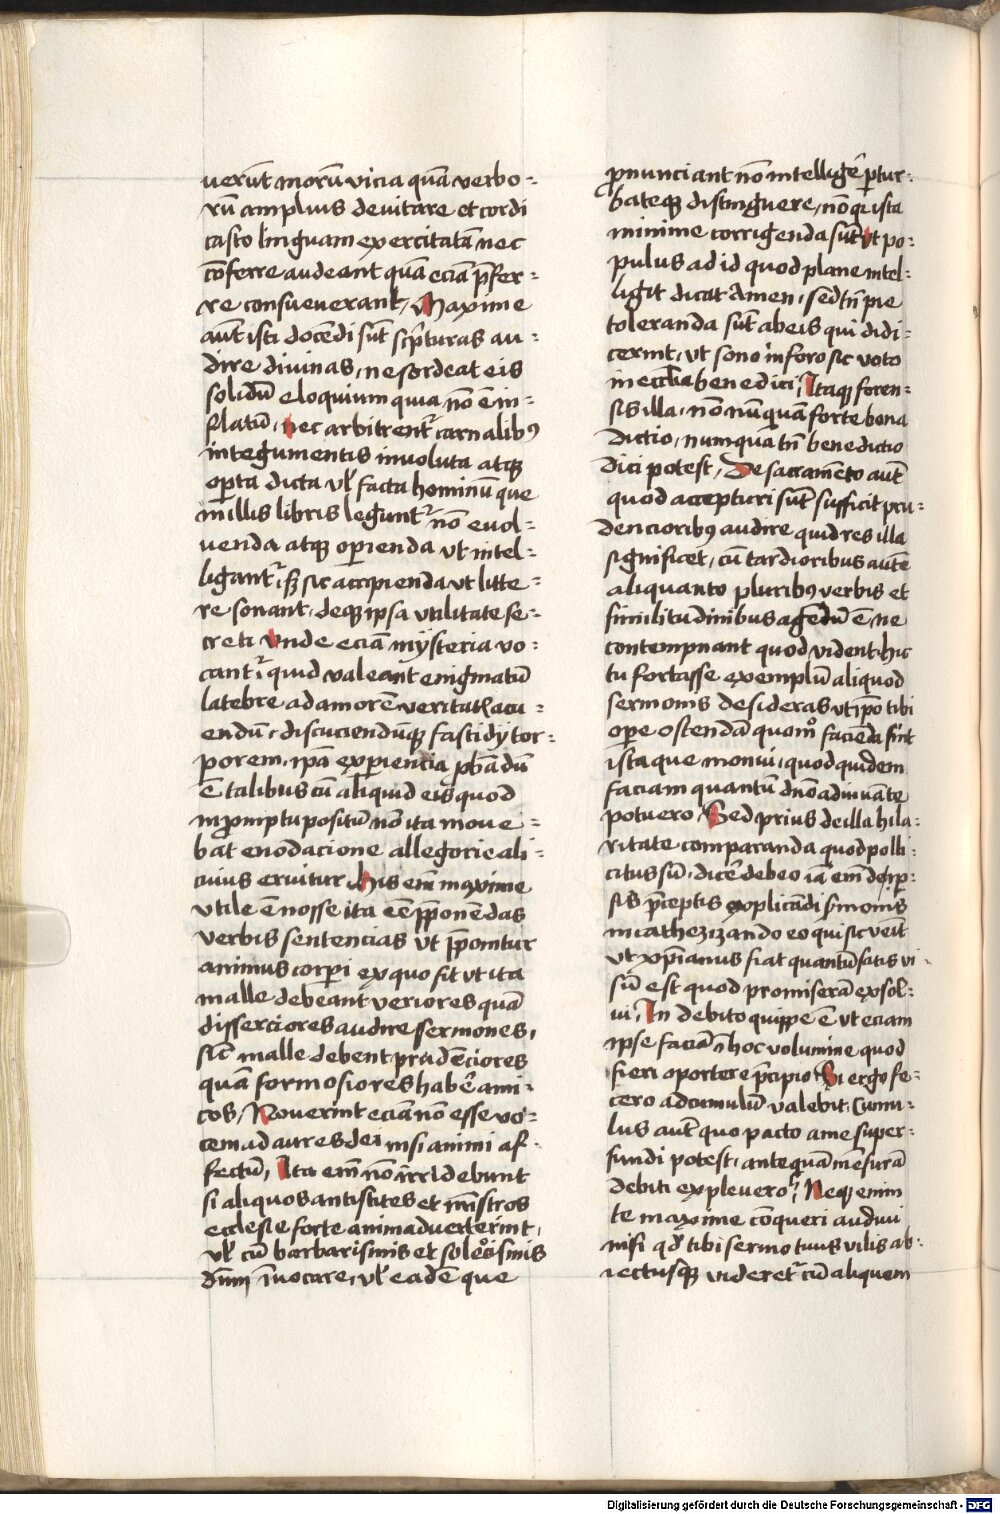 uerūt morū vicia quā verbo-
rū amplius deuitare et cordi
casto linguam exercitatā nec
cōferre audeant quā eciā p̄fer-
re consueuerant, Maxime
aūt isti docēdi sūt sc̄pturas au-
dire diuinas, ne sordeat eis
solidū eloquium quia nō ē in-
flatū, nec arbitrent᷑ carnalibꝰ
integumentis inuoluta atqꝫ
oꝑta dicta vl̓ facta hominū que
in illis libris legunt᷑ nō euol-
uenda atqꝫ oꝑienda vt intel-
ligant᷑ sꝫ sic accipienda vt litte-
re sonant, deqꝫ ipsa vtilitate se-
creti vnde eciā mÿsteria vo-
cant᷑ quid valeant enigmatū
latebre ad amorē veritatꝭ acu-
endū, discuciendūqꝫ fastidÿ tor-
porem, ipā exꝑiencia ꝓbādū
ē talibus cū aliquid eis quod
in ꝓmptu positū nō ita moue-
bat enodacione allegorie ali-
cuius eruitur, his em̄ maxime
vtile ē nosse ita eē p̄ponēdas
verbis sentencias vt p̄ponitur
animus corpori ex quo fit vt ita
malle debeant veriores quā
disserciores audire sermones,
sic̄ malle debent prudēciores
quā formosiores habē ami-
cos, Nouerint eciā non esse vo-
cem ad aures dei nisi animi af-
fectū, Ita em̄ non irridebunt
si aliquos antistites et mīstros
ecclesie forte animaduerterint,
vl̓ cū barbarismis et soloesismis
dm̄ īuocare, vl̓ eadē que
ꝓnunciant nō intelligē ꝑtur-
bateqꝫ distinguere, nō qꝛ ista
minime corrigenda sūt vt po-
pulus ad id quod plane intel-
ligit dicat Amen, sed tn̄ pie
toleranda sūt ab eis qui didi-
cerint, vt sono in foro sic voto
in ecclia benedici, Itaqꝫ foren-
sis illa, non nūquam forte bona
dictio, numquā tn̄ benedictio
dici potest, De sacramēto aūt
quod accepturi sūt sufficit pru-
dencioribꝰ audire quid res illa
significet, cū tardioribus autē
aliquanto pluribꝰ verbis et
similitudinibus agēdū ē ne
contempnant quod vident, hic
tu fortasse exemplū aliquod
sermonis desideras vt ip̄o tibi
oꝑe ostendā quomō faciēda sint
ista que monui, quod quidem
faciam quantū dn̄o adiuuāte
potuero, Sed prius de illa hila-
ritate comparanda quod polli-
citus sū, dicē debeo iā em̄ de ip̄-
sis p̄ceptis explicādi s̓monis
in cathezizando eo qui sic venit
vt xp̄ianus fiat quantū satis vi-
sū est quod promiserā exsol-
ui, In debito quippe ē vt eciam
ipse faciā ī hoc volumine quod
fieri oportere p̄cipio, Si ergo fe-
cero ad cumulū valebit, Cumu-
lus aūt quo pacto a me super-
fundi potest, antequā mēsurā
debiti expleuero, Neqꝫ enim
te maxime cōqueri audiui
nisi qd̓ tibi sermo tuus vilis ab-
iectusqꝫ videret᷑ cū aliquem
Digitalisierung gefördert durch die Deutsche Forschungsgemeinschaft - DFG